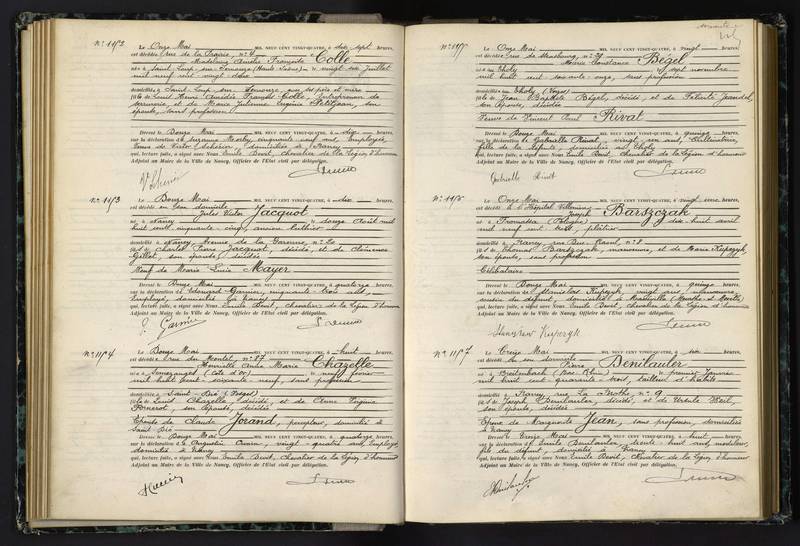 N° 1153
Le Onze Mai MIL NEUF CENT VINGT-QUATRE, à dix sept heures,
est décédée rue de la Prairie, n° 4
Madeleine Amélie Françoise Colle
née à Saint Loup sur Semouse (Haute Saône) le vingt six Juillet
mil neuf cent vingt deux
domiciliée à Saint Loup sur Semouse, avec ses père et mère
fille de Louis Henri Colle, Entrepreneur de
serrurerie, et de Marie Julienne Eugénie Petitjean, son
épouse, sans profession
Dressé le Douze Mai MIL NEUF CENT VINGT-QUATRE, à dix heures,
sur la déclaration de cinquante neuf ans, employée,
Veuve de Victor domiciliée à Nancy
qui, lecture faite, a signé avec Nous Emile Chevalier de la Légion d'honneur
Adjoint au Maire de la Ville de Nancy, Officier de l'Etat civil par délégation.
N° 1153
Le Douze Mai MIL NEUF CENT VINGT-QUATRE, à dix heures,
est décédé en son domicile
Jules Victor Jacquot
né à Nancy le douze Août mil
huit cent cinquante cinq, ancien luthier
domicilié à Nancy, Avenue de la Garenne, n° 20
fils de Charles Pierre Jacquot, décédé, et de Clémence
Gillet, son épouse, décédée
Veuf de Marie Lucie Mayer
Dressé le Douze Mai MIL NEUF CENT VINGT-QUATRE, à quatorze heures,
sur la déclaration de Edouard Garnier, cinquante trois ans,
Employé, domicilié à Nancy
qui, lecture faite, a signé avec Nous Emile Chevalier de la Légion d'honneur
Adjoint au Maire de la Ville de Nancy, Officier de l'Etat civil par délégation.
Garnier
N° 1154
Le Douze Mai MIL NEUF CENT VINGT-QUATRE, à huit heures,
est décédée rue de Montet, n° 57
Henriette Anne Marie Chazelle
née à (Côte d'Or) le neuf Février
mil huit cent soixante neuf, sans profession
domiciliée à Saint Dié (Vosges)
fille de Louis Chazelle décédé, et de Claire Virginie
son Epouse, décédée
Epouse de Claude Jorand, percepteur, domicilié à
Saint Dié
Dressé le Douze Mai MIL NEUF CENT VINGT-QUATRE, à quatorze heures,
sur la déclaration de vingt quatre ans, Employé,
domicilié à Nancy
qui, lecture faite, a signé avec Nous Emile Chevalier de la Légion d'honneur
Adjoint au Maire de la Ville de Nancy, Officier de l'Etat civil par délégation.
N° 1155
Le Onze Mai MIL NEUF CENT VINGT-QUATRE, à vingt heures,
est décédée rue de Strasbourg, n° 79
Marie Constance Bégel
née à Tholy le sept novembre
mil huit cent soixante onze, sans profession
domiciliée à Tholy (Vosges)
fille de Jean Baptiste Bégel, décédé, et de Félicité Jeandel,
son épouse, décédée
Veuve de Vincent Paul Rivat
Dressé le Douze Mai MIL NEUF CENT VINGT-QUATRE, à quinze heures,
sur la déclaration de Gabrielle Rivat, ans, Cultivatrice,
fille de la défunte, domiciliée au Tholy
qui, lecture faite, a signé avec Nous Emile Chevalier de la Légion d'honneur
Adjoint au Maire de la Ville de Nancy, Officier de l'Etat civil par délégation.
Gabrielle Rivat
N° 1156
Le Onze Mai MIL NEUF CENT VINGT-QUATRE, à vingt une heures,
est décédé à l'Hôpital Villemin,
Joseph Barszczak
né à (Pologne) le dix huit avril
mil neuf cent trois, plâtrier
domicilié à Nancy, rue n° 8
fils de Thomas Barszczak, manœuvre, et de Marie Kupczyk,
son épouse, sans profession
Célibataire
Dressé le Douze Mai MIL NEUF CENT VINGT-QUATRE, à quinze heures,
sur la déclaration de Stanislas Kupczyk, vingt ans, manœuvre,
cousin du défunt, domicilié à (Meurthe et Moselle)
qui, lecture faite, a signé avec Nous Emile Chevalier de la Légion d'honneur
Adjoint au Maire de la Ville de Nancy, Officier de l'Etat civil par délégation.
Stanisław Kupczyk
N° 1157
Le Treize Mai MIL NEUF CENT VINGT-QUATRE, à six heures,
est décédé en son domicile
Pierre Benilauler
né à Breitenbach (Bas Rhin) le premier Janvier
mil huit cent quarante trois, tailleur d'habits
domicilié à Nancy, rue La Mothe n° 9
fils de Joseph Benilauler, décédé, et de Ursule Weil,
son épouse, décédée
Epoux de Marguerite Jean, sans profession, domiciliée
à Nancy
Dressé le Treize Mai MIL NEUF CENT VINGT-QUATRE, à huit heures,
sur la déclaration de Emile Benilauler, trente huit ans, modeleur,
fils du défunt, domicilié à Nancy
qui, lecture faite, a signé avec Nous Emile Chevalier de la Légion d'honneur
Adjoint au Maire de la Ville de Nancy, Officier de l'Etat civil par délégation.